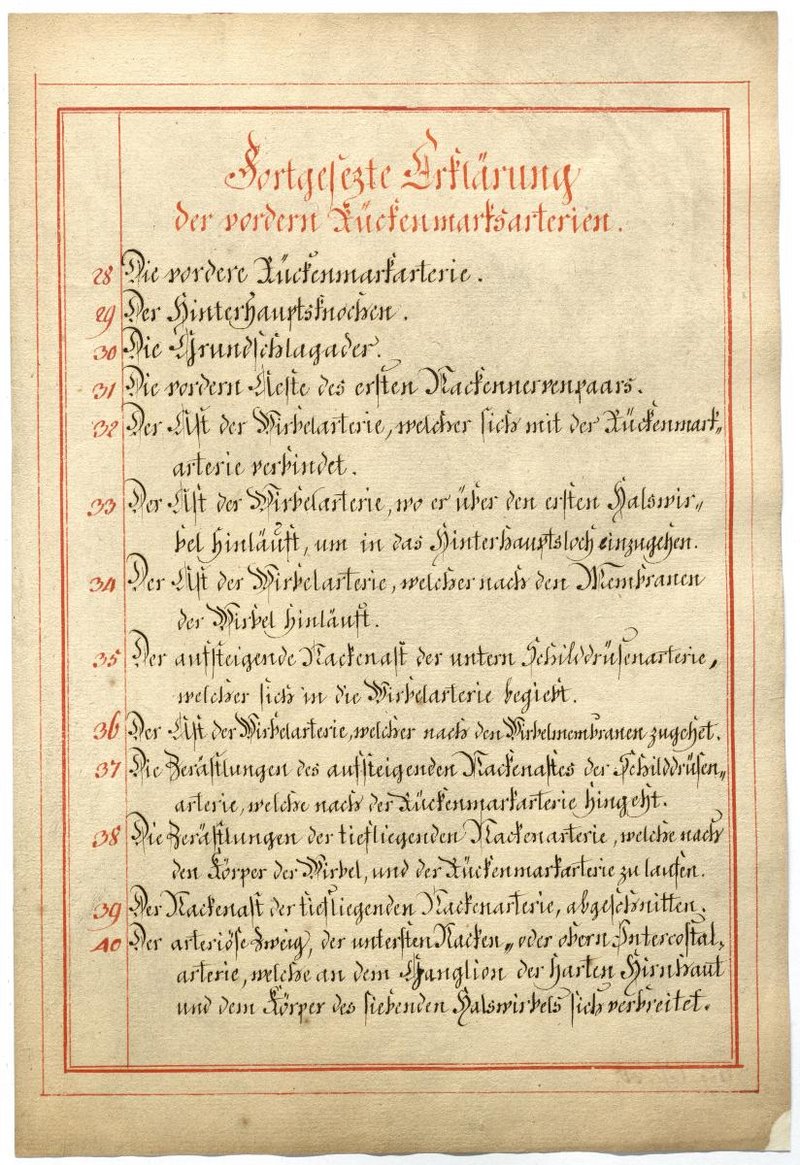 Fortgesezte Erklärung
der vordern Rückenmarksarterien.
28 Die vordere Rückenmarkarterie.
29 Der Hinterhauptsknochen.
30 Die Grundschlagader.
31 Die vordern Aeste des ersten Nackennervenpaars.
32 Der Ast der Wirbelarterie, welcher sich mit der Rückenmark„
arterie verbindet.
33 Der Ast der Wirbelarterie, wo er über den ersten Halswir„
bel hinläuft, um in das Hinterhauptsloch einzugehen.
34 Der Ast der Wirbelarterie, welcher nach den Membranen
der Wirbel hinläuft.
35 Der aufsteigende Nackenast der untern Schilddrüsenarterie,
welcher sich in die Wirbelarterie begiebt.
36 Der Ast der Wirbelarterie, welcher nach den Wirbelmembranen zugehet.
37 Die Zerästlungen des aufsteigenden Nackenastes der Schilddrüsen„
arterie, welche nach der Rückenmarkarterie hingeht.
38 Die Zerästlungen der tiefliegenden Nackenarterie, welche nach
den Körper der Wirbel, und der Rückenmarkarterie zu laufen.
39 Der Nackenast der tiefliegenden Nackenarterie, abgeschnitten.
40 Der arteriöse Zweig, der untersten Nacken„ oder obern Intercostal„
arterie, welche an dem Ganglion der harten Hirnhaut
und dem Körper des siebenden Halswirbels sich verbreitet.